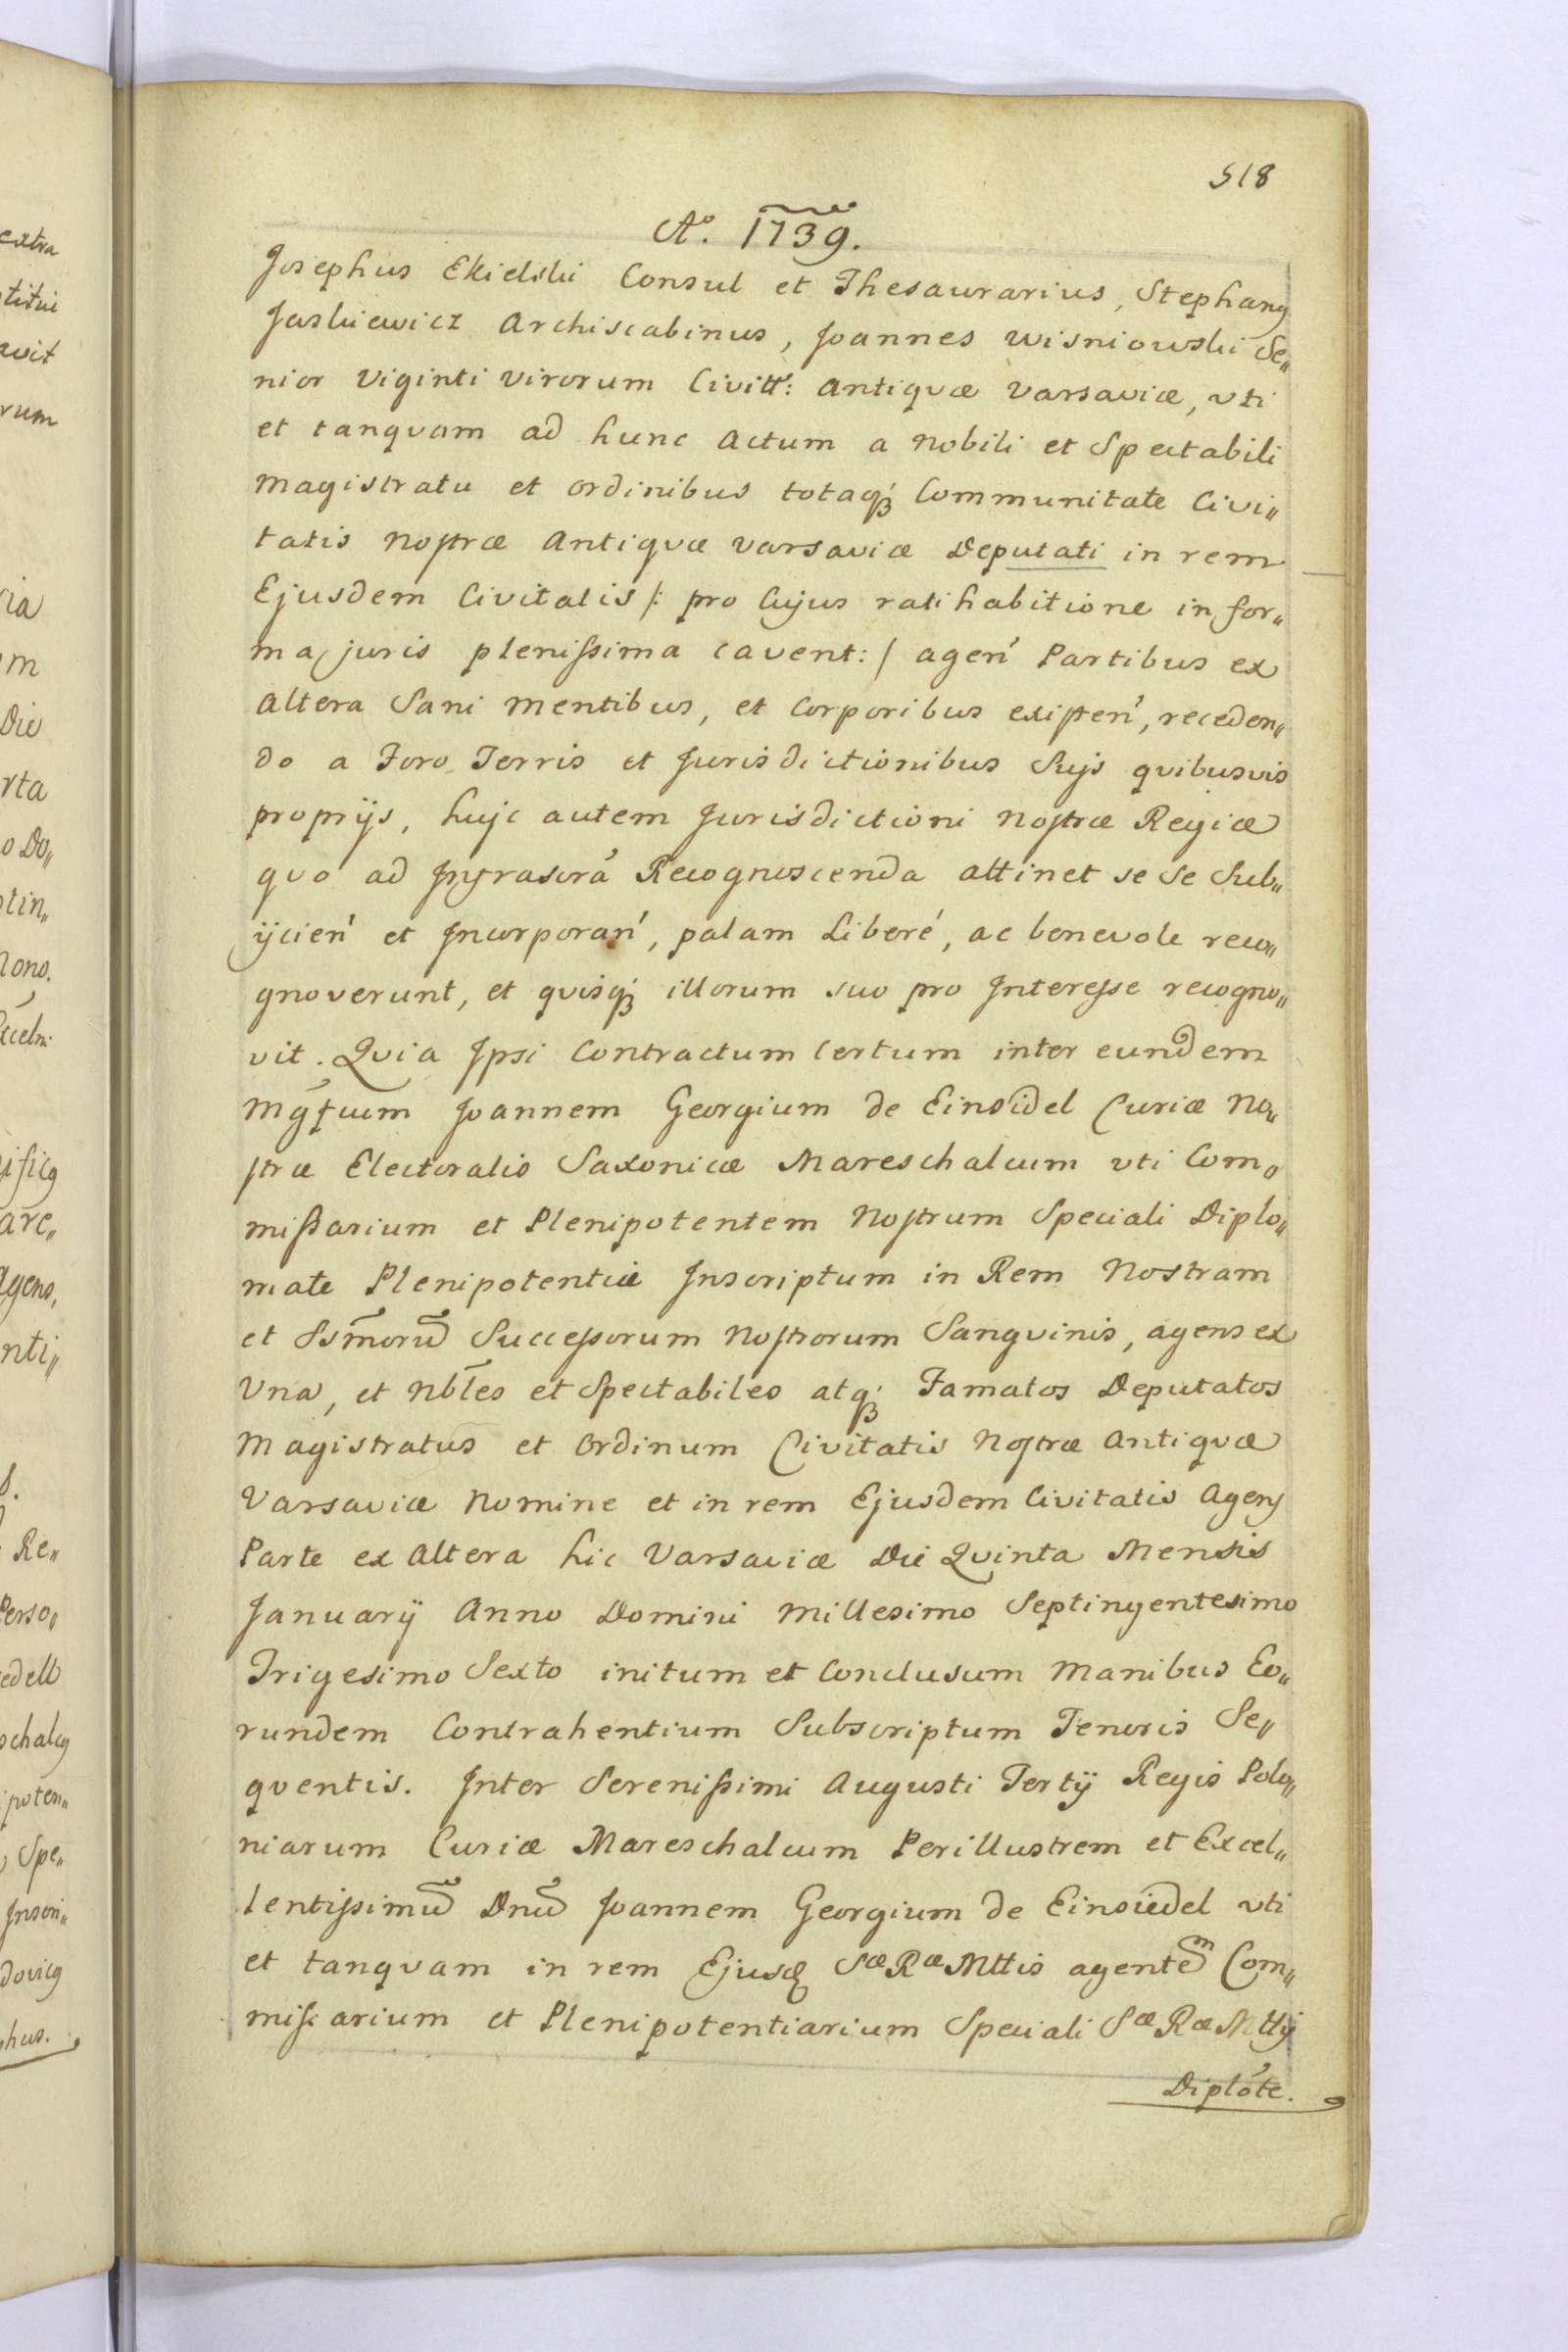 518
Aº. 1739.
Josephus Ekielski Consul et Thesaurarius, Stephanꝰ
Jaskiewicz Archiscabinus, Joannes Wisniowski Se„
nior Viginti Virorum Civitt: Antiqvæ Varsaviæ, vti
et tanqvam ad hunc Actum a Nobili et Spectabili
Magistratu et Ordinibus totaqꝫ Communitate Civi„
tatis Nostræ Antiqvæ Varsaviæ Deputati in rem
Ejusdem Civitatis /: pro Cujus ratihabitione in for„
ma juris plenissima cavent: / agen̄ Partibus ex
Altera Sani Mentibus, et Corporibus existen̄, receden„
do a Foro Terris et Jurisdictionibus Suis qvibusvis
proprijs, hujc autem Jurisdictioni Nostræ Regiæ
qvo ad Infrascrā Recognoscenda attinet se se Sub„
ijcien̄ et Incorporan̄, palam Liberé, ac benevole reco„
gnoverunt, et qvisqꝫ illorum suo pro Interesse recogno„
vit. Qvia Ipsi Contractum Certum inter eundem
Mg̃fcum Joannem Georgium de Einsidel Curiæ No„
stræ Electoralis Saxonicæ Mareschalcum vti Com„
missarium et Plenipotentem Nostrum Speciali Diplo„
mate Plenipotentiæ Inscriptum in Rem Nostram
et Ssm̃orũ Successorum Nostrorum Sangvinis, agens ex
Vna, et Nbl̃es et Spectabiles atqꝫ Famatos Deputatos
Magistratus et Ordinum Civitatis Nostræ Antiqvæ
Varsaviæ Nomine et in rem Ejusdem Civitatis Agenꝭ
Parte ex Altera hic Varsaviæ Die Qvinta Mensis
Januarij Anno Domini Millesimo Septingentesimo
Trigesimo Sexto initum et Conclusum Manibus Eo„
rundem Contrahentium Subscriptum Tenoris Se„
qventis. Inter Serenissimi Augusti Tertij Regis Polo„
niarum Curiæ Mareschalcum Perillustrem et Excel„
lentissimũ Dnũ Joannem Georgium de Einsiedel vti
et tanqvam in rem Ejusd SæRæMttis agentem Com„
missarium et Plenipotentiarium Speciali SæRæMttis
Diplõte.